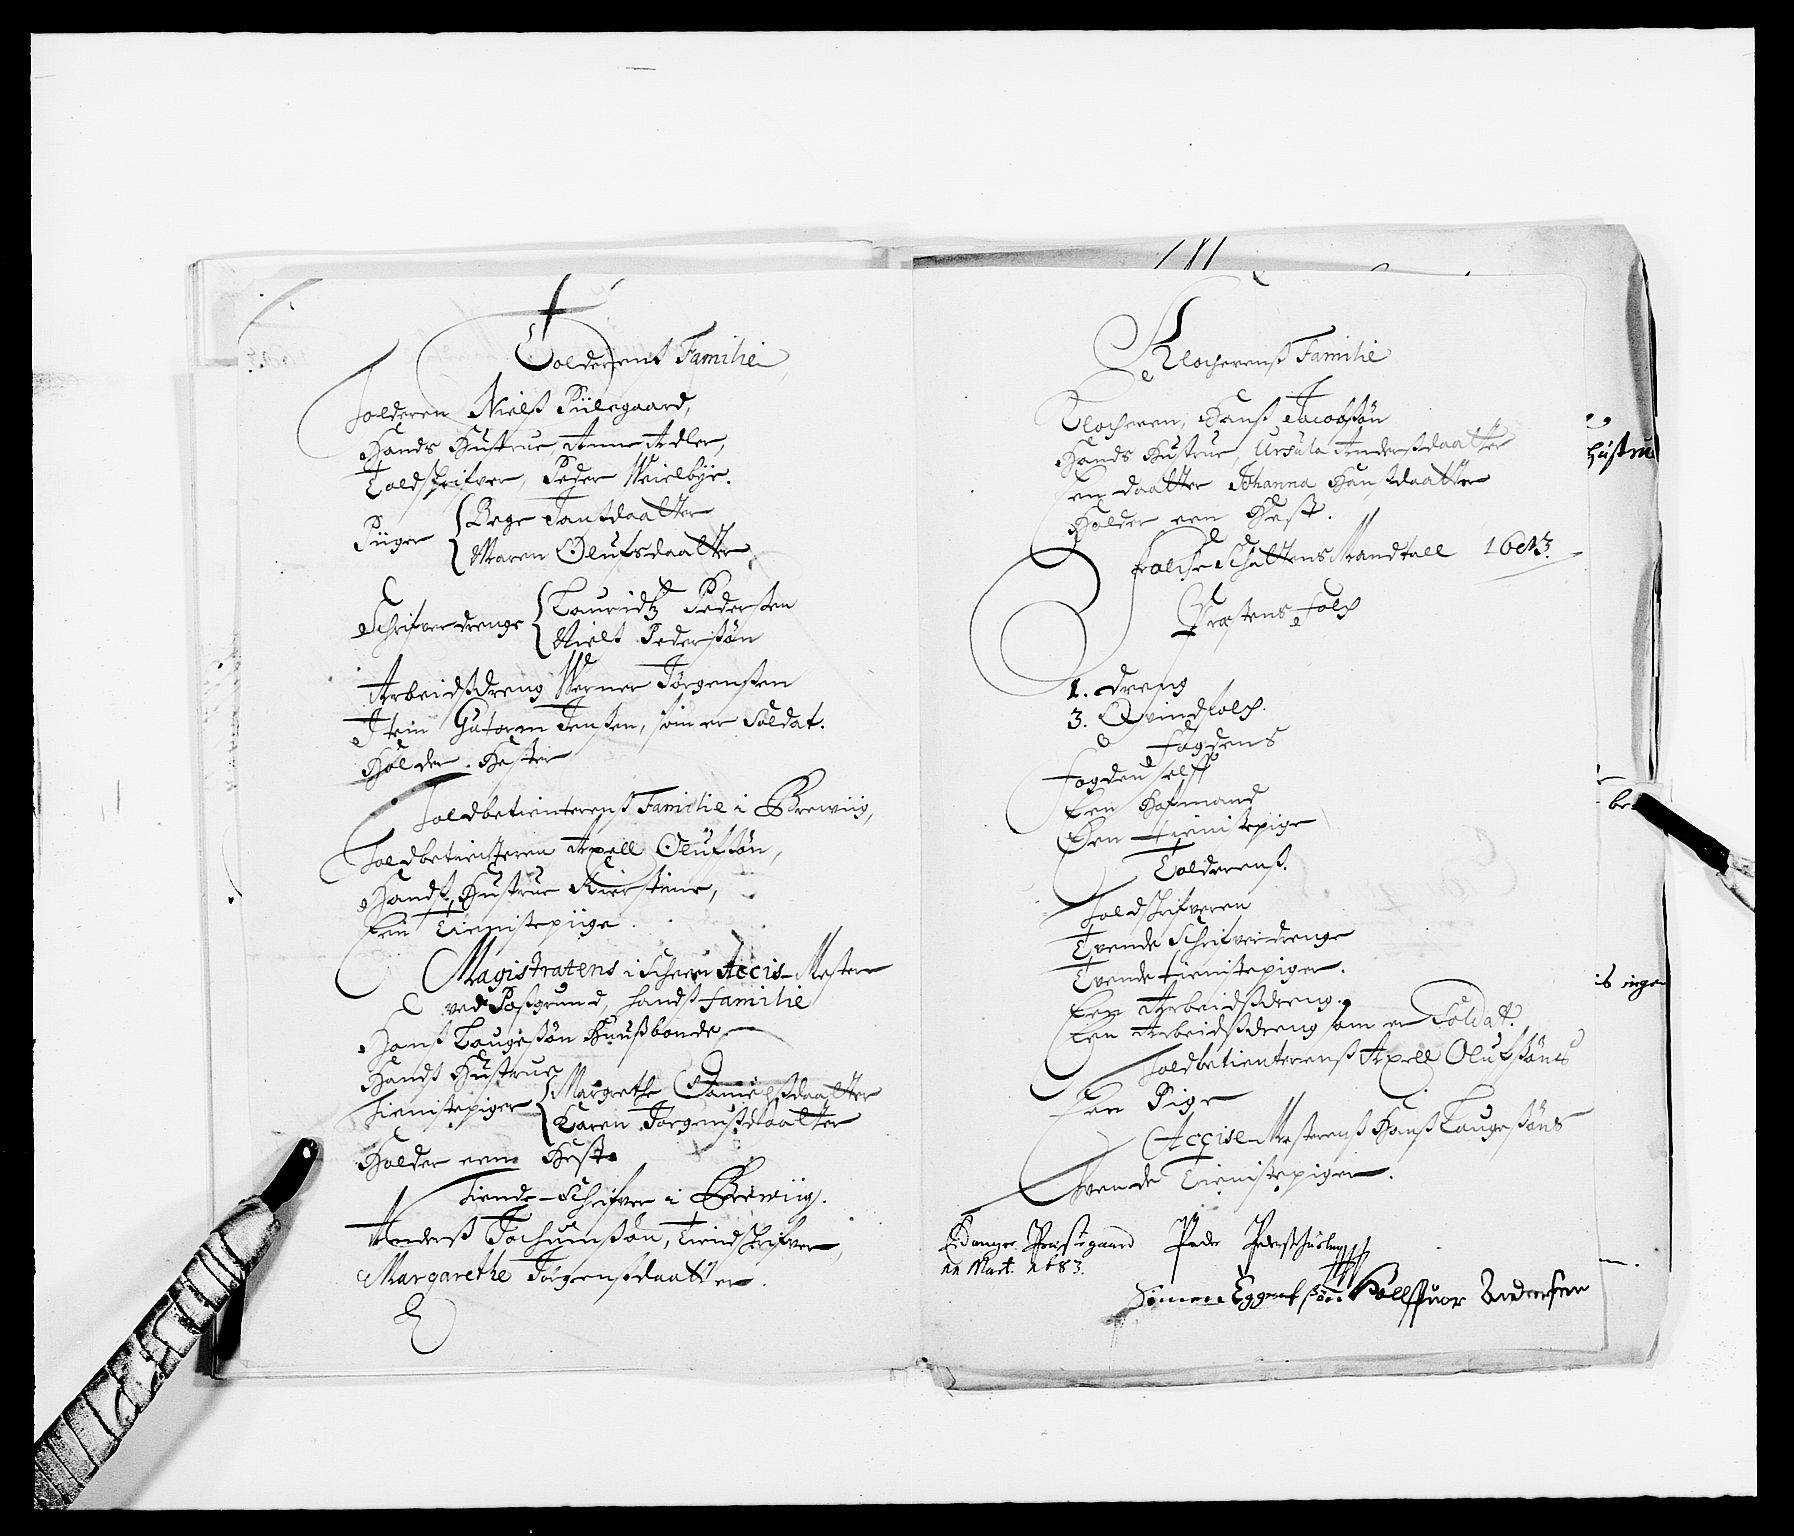 Tolderens Familie
Tolderen Nielß Piilegaard,
Hands Hustrue, Anne Adler,
Toldschrifver, Peder Weielbye.
Piiger { Bege Jansdaatter
{ Maren Olufsdaatter
Schrifverdrenge { Lauridtz Pedersen
{ Nielß Pedersøn
Arbeidsdreng Werner Jørgensen
Item Gutorm Jensen, som er Soldat.
Holder . Hester
Toldbetienterens Familie i Brewiig,
Toldbetienteren Axell Olufsøn,
Hands Hustrue Kierstine,
Een Tienistepiige.
Magistratens i Scheen Accis-Mester
ved Porsgrund, hands familie
Hans Laugesøn Huusbonde
Hands Hustrue
Tienistepiger { Margrethe Danielsdaatter
{ Karen Jørgensdaatter
Holder een Hest.
Tiende-Schrifver i Brewiig.
Anders Jochumsøn, Tiendschrifver,
Margarethe Jørgensdaatter.
Klocherens Familie
Klocheren, Hans Jacobsøn
Hands Hustrue, Ursula Andersdaatter
Een daatter Johanna Hansdaatter
Holder een Hest.
Folche Schattens Mandtall 1683.
Præstens folch
1. dreng
3. Qvindfolch.
Fogdens
Fogden self
Een Hofmand
Een Tienistepige
Tolderens.
Toldschrifveren
Tvende Schrifverdrenge
Tvende tienistepiger.
Een Arbeidsdreng.
Een Arbeidsdreng som er Soldat.
Toldbetienterens Axell Olufsøns
Een Pige
Accise-Mesterens Hans Laugesøns
Tvende Tienistepiger.
Eidanger Præstegaard Peder
Mart. 1683.
Simen Eggertsøn Hallffuor Andersen
hustru
is ingen